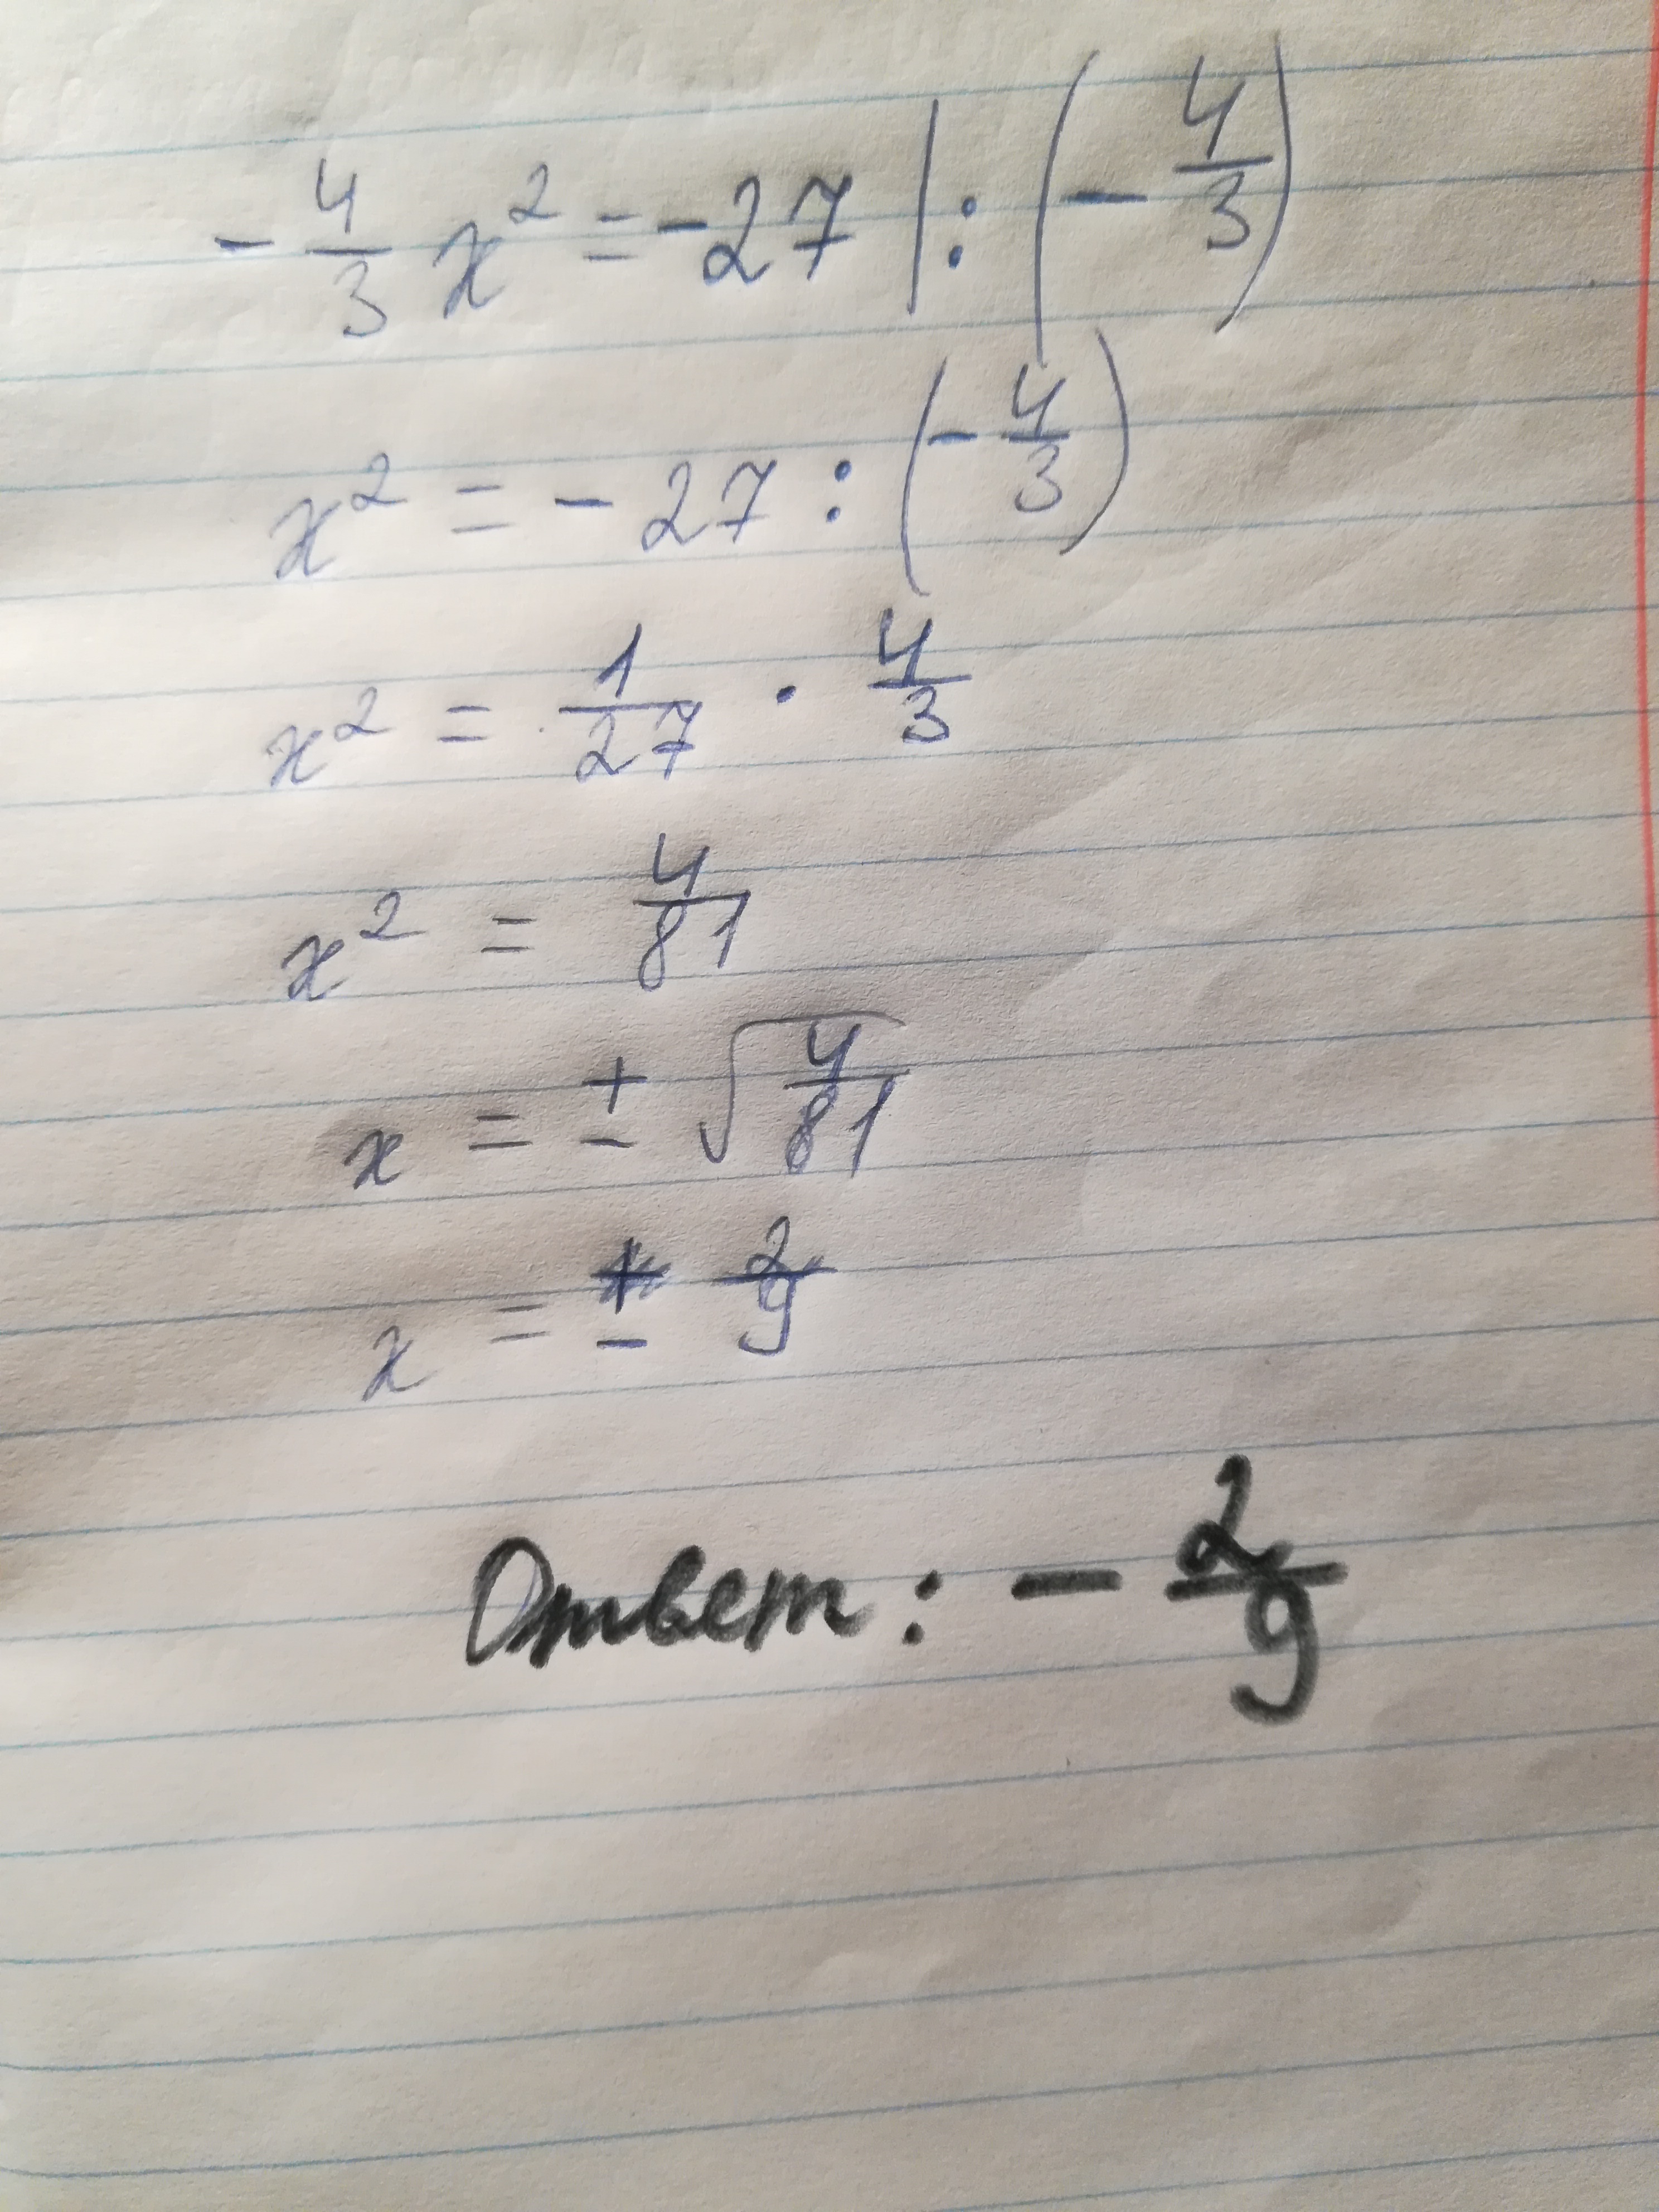 -4/3 x² = -27 | : (-4/3)
x² = - 27 : (-4/3)
x² = 1/27 · 4/3
x² = 4/81
x = ± √(4/81)
x = ± 2/9
Ответ: - 2/9